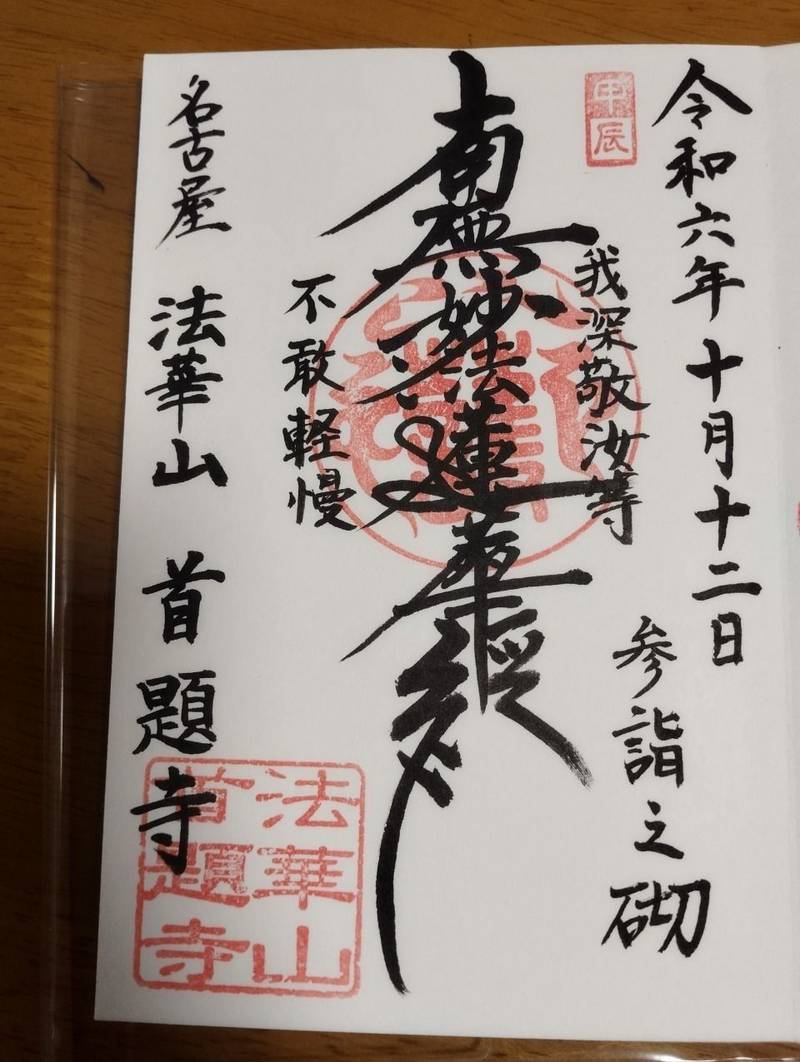 令和六年十月十二日
参詣之砌
甲辰
我深敬汝等
南無妙法蓮華経
不敢軽慢
名古屋 法華山 首題寺
法華山
首題寺